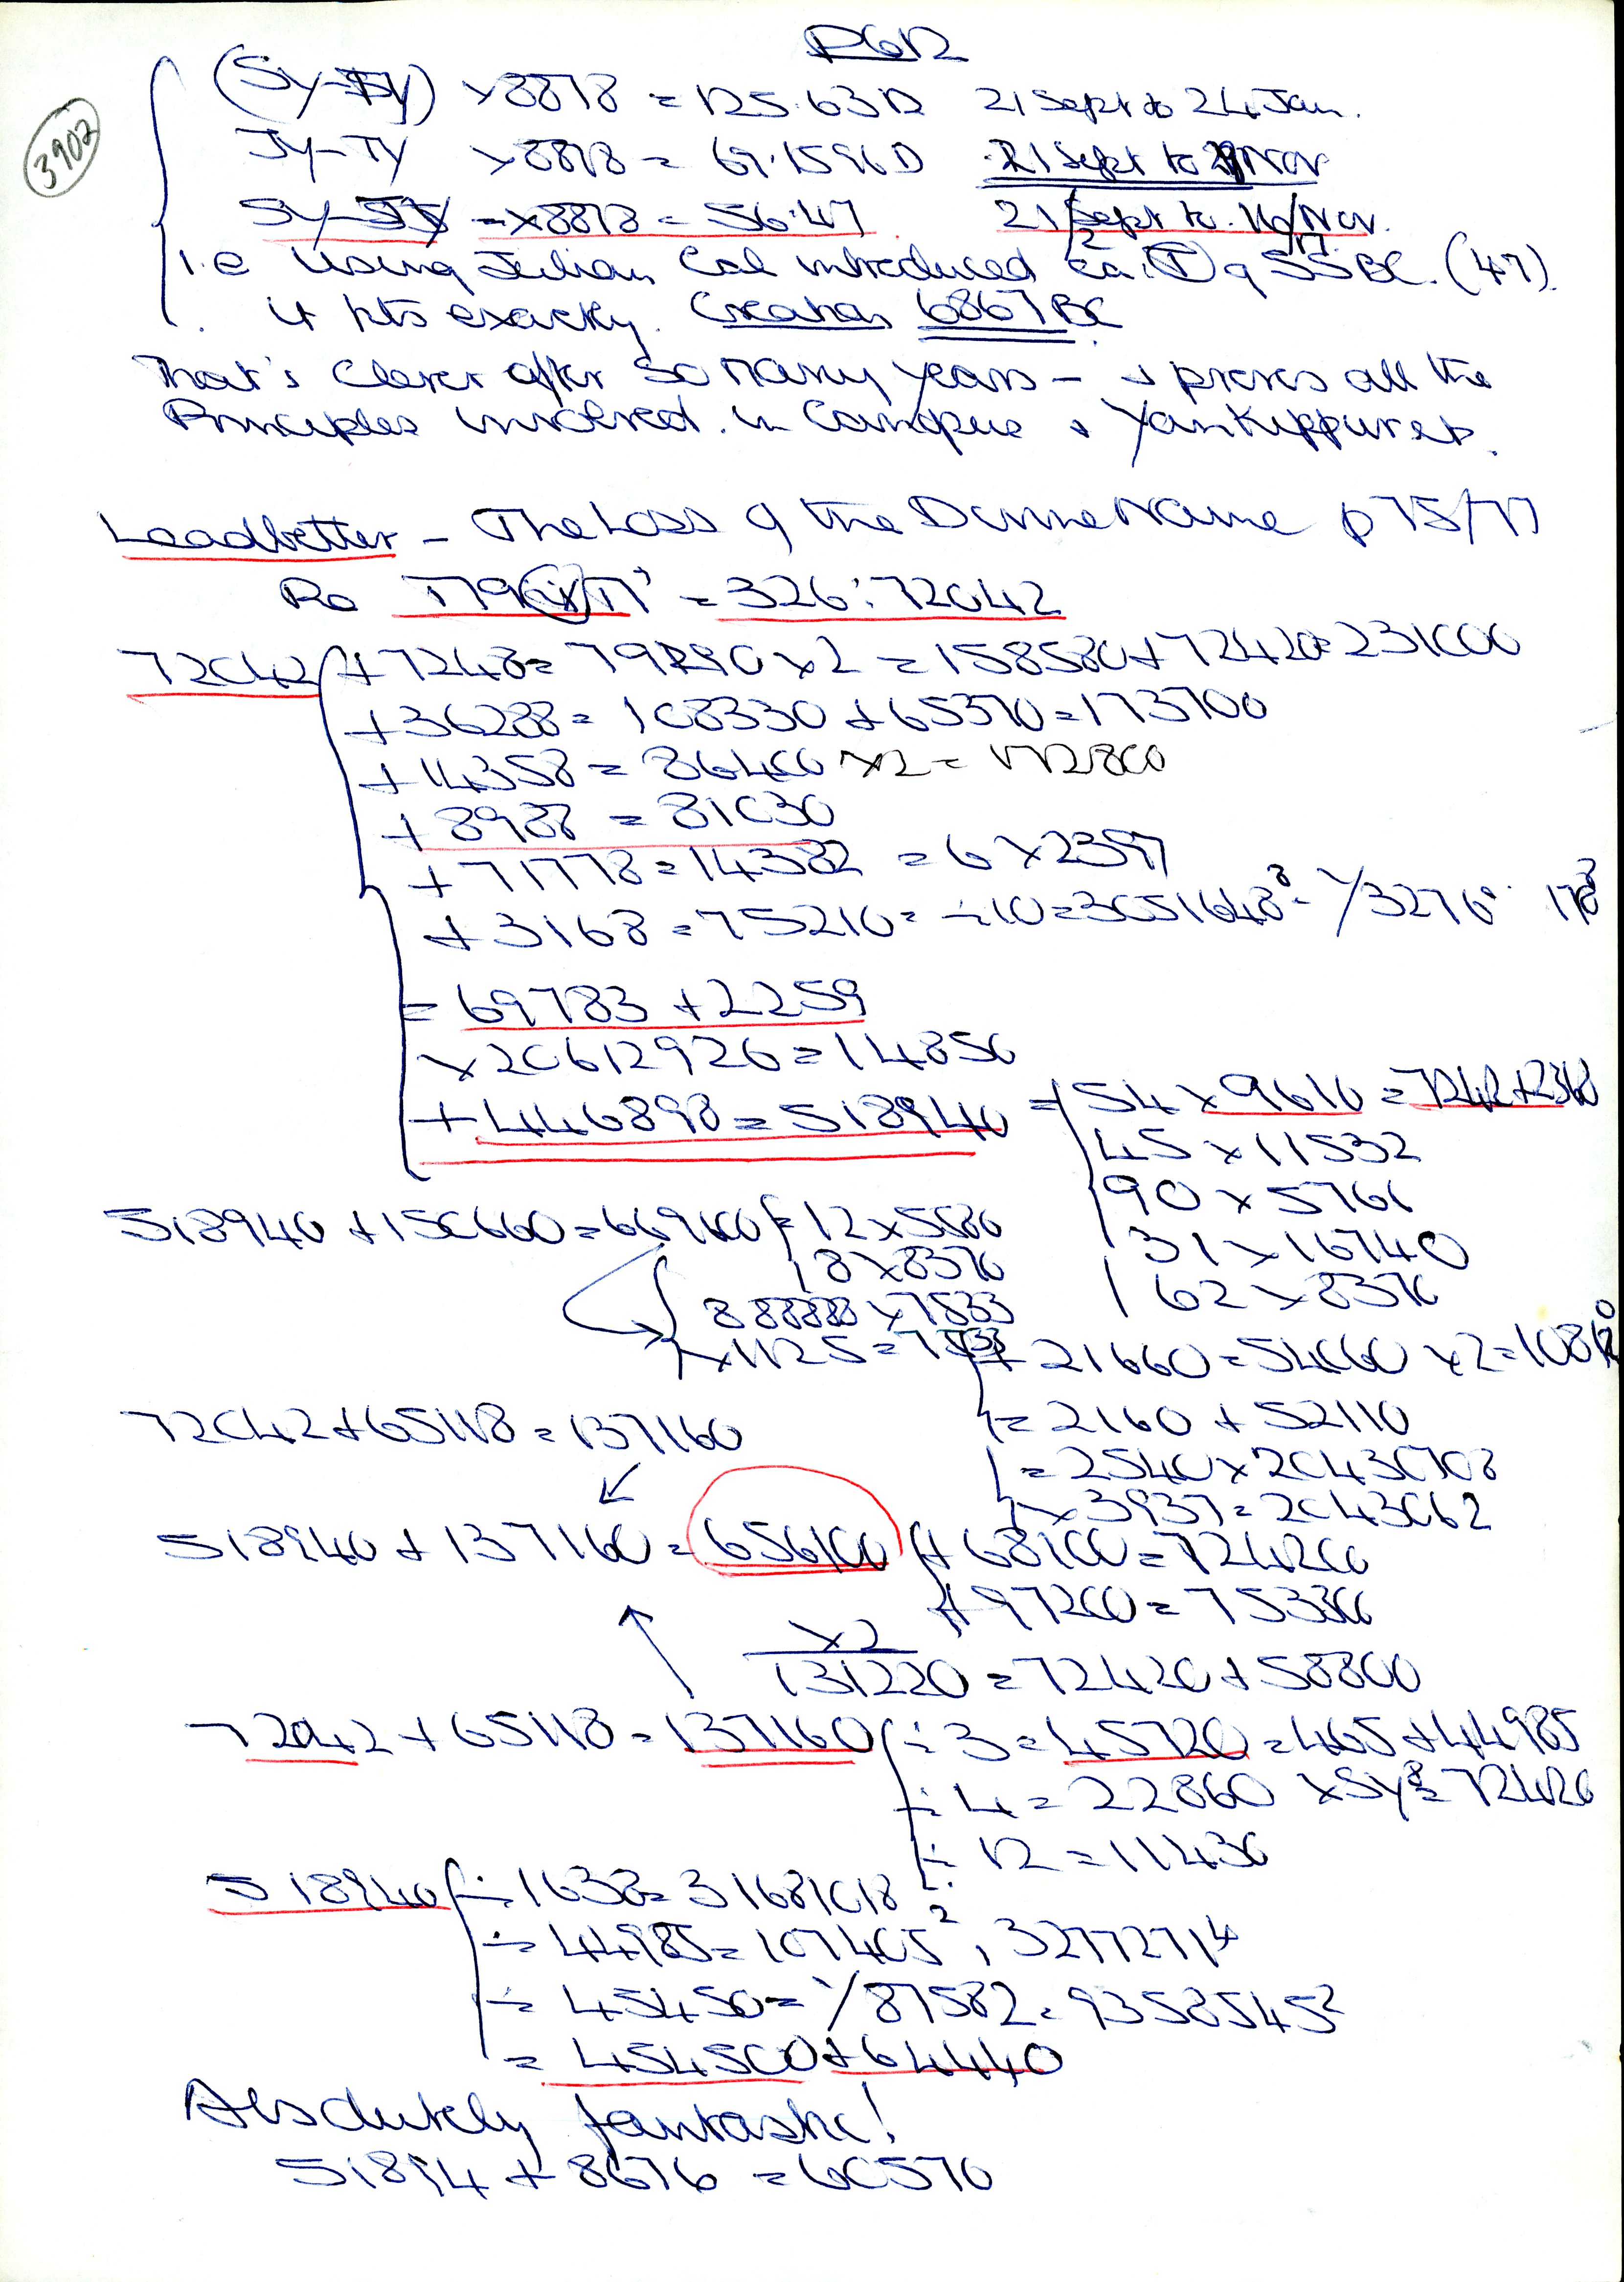 PG12
3902
(Sy-Ty) x 8878 = 125.63 D 21 Sept to 24 Jan.
Jy-Ty x 8878 = 69.1596 D 21 Sept to Nov
Sy-Jy x 8878 = 56.47 21 Sept to 16/Nov.
i.e Using Julian Cal introduced BC. (47)
it fits exactly. Creation 6867 BC
That's Clever after so many years - & proves all the
Principles involved. in Canopus & Yom Kippur etc.
Leadbetter - The Loss of the Divine Name p 75/77
Re = 326:72042
72042 + 7248 = 79290 x 2 = 158580 + 72420 = 231000
+ 36288 = 108330 + 65370 = 173700
+ 14358 = 86400 x 2 = 172800
+ 8988 = 81030
+ 71778 = 14382 = 6 x 2397
+ 3168 = 75210 = ÷ 10 =
= 69783 + 2259
x 20612926 = 14850
+ 446898 = 518940 = 54 x 9610 =
45 x 11532
90 x 5766
31 x 16740
62 x 8370
518940 + 150660 = 669600 = 12 x 5580
18 x 8370
x 7533
x 1125 = 7533
+ 21660 = 54060 x 2 =
= 2160 + 52110
= 2540 x 20430708
x 3937 = 2043062
72042 + 65118 = 137160
518940 + 137160 = 656100 + 68100 = 724200
+ 97200 = 753300
x 2
131220 = 72420 + 58800
72042 + 65118 = 137160 ÷ 3 = 45720 = 465 + 44985
÷ 4 = 22860 x Sy⁸ = 72420
÷ 12 = 11430
518940 ÷ 1638 = 31681018
÷ 44985 = 107405², 32772714
÷ 45450 = 1/87582 = 9358545²
= 454500 + 64440
Absolutely fantastic!
51894 + 8676 = 60570